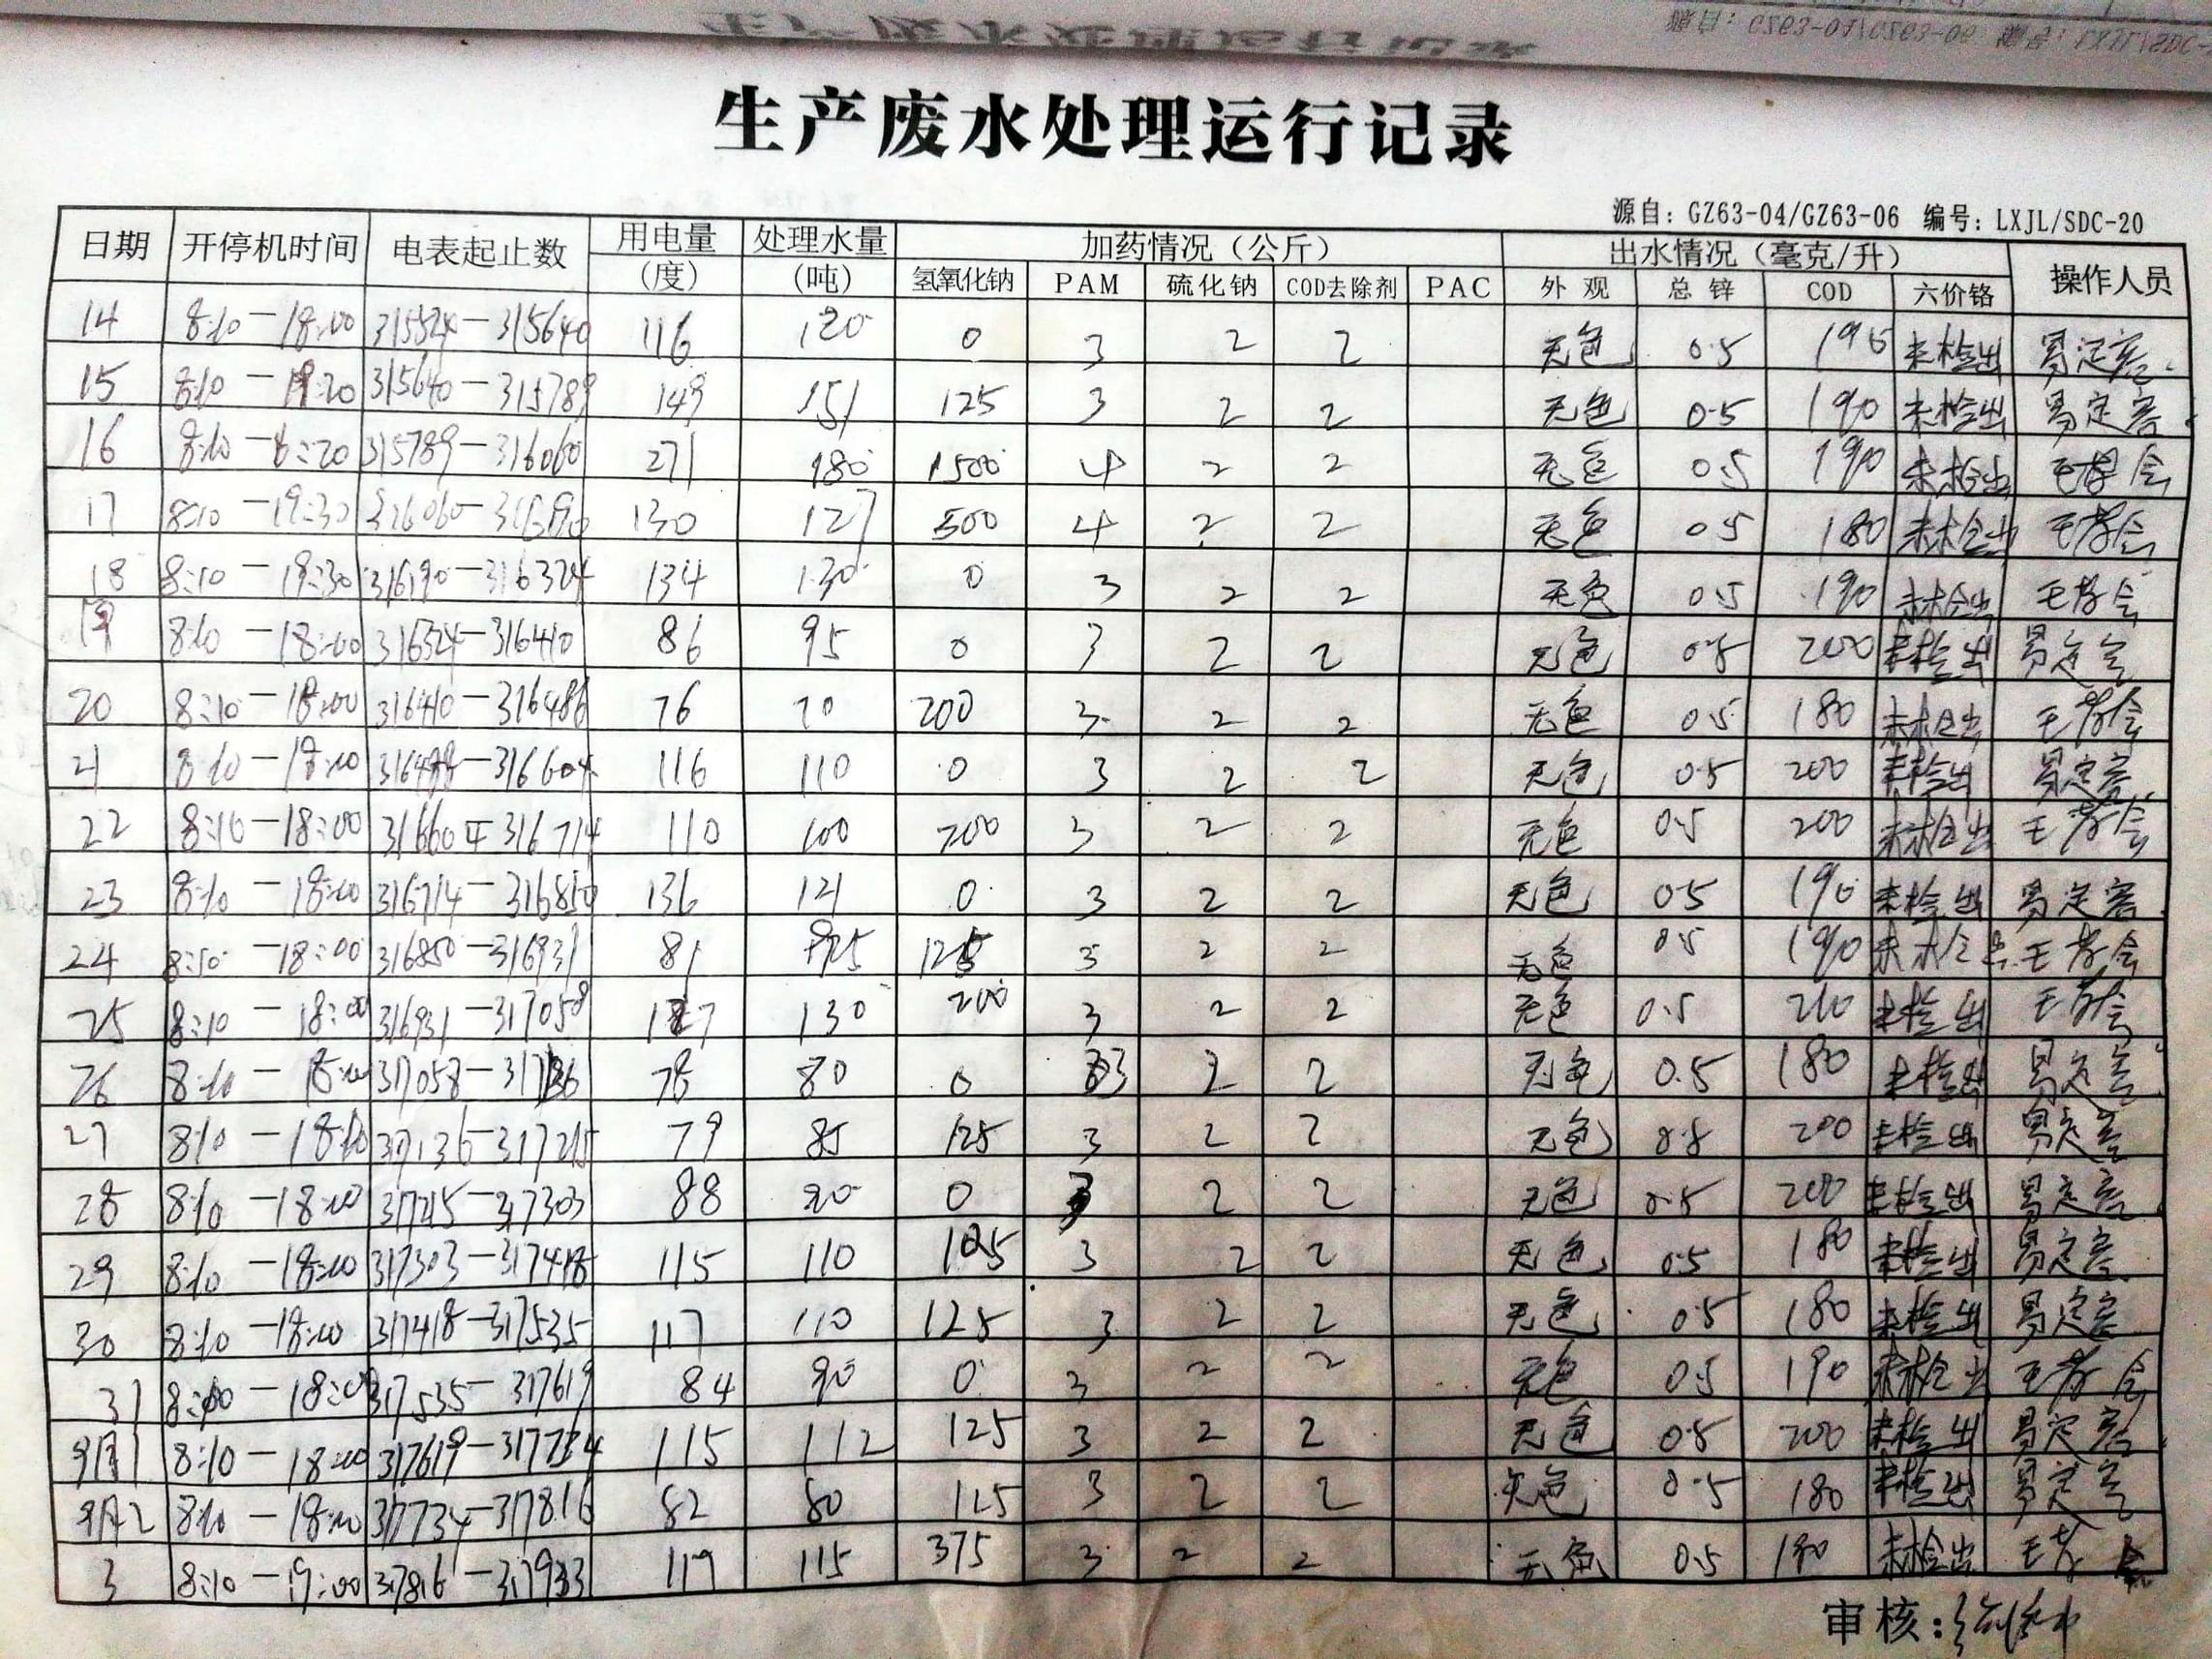 生产废水处理运行记录
源自：GZ63-04/GZ63-06 编号：LXJL/SDC-20
日期 开停机时间 电表起止数 用电量（度） 处理水量（吨） 加药情况（公斤） 出水情况（毫克/升） 操作人员
氢氧化钠 PAM 硫化钠 COD去除剂 PAC 外观 总锌 COD 六价铬
14 8:10-18:00 315524-315640 116 120 0 3 2 2 无色 0.5 195 未检出
15 8:10-19:20 315640-315789 149 151 125 3 2 2 无色 0.5 190 未检出
16 8:10- 315789-316060 271 180 1500 4 2 2 无色 0.5 190 未检出
17 8:10-19:30 316060-316190 130 127 500 4 2 2 无色 0.5 180 未检出
18 8:10-19:30 316190-316324 134 130 0 3 2 2 无色 0.5 190 未检出
19 8:10-18:00 316324-316410 86 95 0 3 2 2 无色 0.5 200 未检出
20 8:10-18:00 316410-316486 76 70 200 3 2 2 无色 0.5 180 未检出
21 8:10-18:00 316488-316604 116 110 0 3 2 2 无色 0.5 200 未检出
22 8:10-18:00 316604-316714 110 100 200 3 2 2 无色 0.5 200 未检出
23 8:10-18:00 316714-316850 136 121 0 3 2 2 无色 0.5 190 未检出
24 8:10-18:00 316850-316931 81 125 3 2 2 无色 0.5 190 未检出
25 8:10-18:00 316931-317058 127 130 200 3 2 2 无色 0.5 210 未检出
26 8:10-18:00 317058-317136 78 80 0 3 2 2 无色 0.5 180 未检出
27 8:10-18:10 317136-317215 79 85 125 3 2 2 无色 0.5 200 未检出
28 8:10-18:00 317215-317303 88 90 0 3 2 2 无色 0.5 200 未检出
29 8:10-18:00 317303-317418 115 110 125 3 2 2 无色 0.5 180 未检出
30 8:10-18:00 317418-317535 117 110 125 3 2 2 无色 0.5 180 未检出
31 8:10-18:00 317535-317619 84 90 0 3 2 2 无色 0.5 190 未检出
9月1 8:10-18:00 317619-317734 115 112 125 3 2 2 无色 0.5 200 未检出
9月2 8:10-18:00 317734-317816 82 80 125 3 2 2 无色 0.5 180 未检出
3 8:10-19:00 317816-317933 117 115 375 3 2 2 无色 0.5 180 未检出
审核：